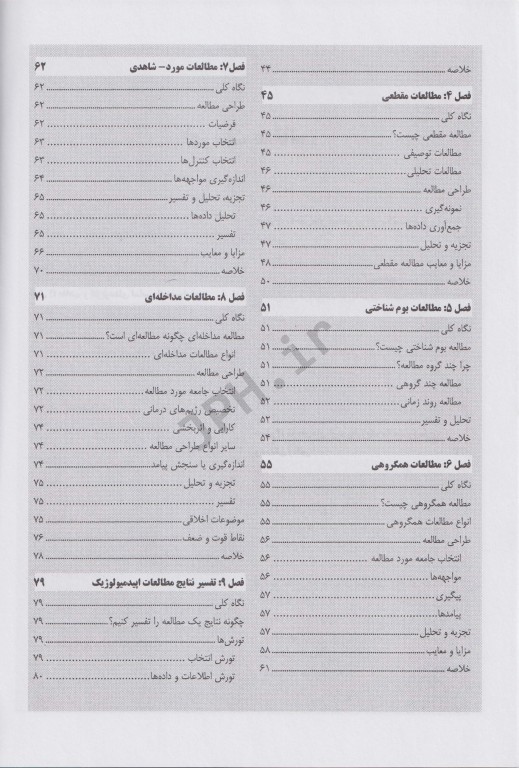 خلاصه ........ ۴۴
فصل ۴: مطالعات مقطعی ۴۵
نگاه کلی ........ ۴۵
مطالعه مقطعی چیست؟ ........ ۴۵
مطالعات توصیفی ........ ۴۵
مطالعات تحلیلی ........ ۴۶
طراحی مطالعه ........ ۴۶
نمونه‌گیری ........ ۴۶
جمع‌آوری داده‌ها ........ ۴۷
تجزیه و تحلیل ........ ۴۷
مزایا و معایب مطالعه مقطعی ........ ۴۸
خلاصه ........ ۵۰
فصل ۵: مطالعات بوم شناختی ۵۱
نگاه کلی ........ ۵۱
مطالعه بوم شناختی چیست؟ ........ ۵۱
چرا چند گروه مطالعه؟ ........ ۵۱
مطالعه چند گروهی ........ ۵۱
مطالعه روند زمانی ........ ۵۲
تحلیل و تفسیر ........ ۵۲
خلاصه ........ ۵۴
فصل ۶: مطالعات همگروهی ۵۵
نگاه کلی ........ ۵۵
مطالعه همگروهی چیست؟ ........ ۵۵
انواع مطالعات همگروهی ........ ۵۵
طراحی مطالعه ........ ۵۶
انتخاب جامعه مورد مطالعه ........ ۵۶
مواجهه‌ها ........ ۵۶
پیگیری ........ ۵۷
پیامدها ........ ۵۷
تجزیه و تحلیل ........ ۵۷
مزایا و معایب ........ ۵۸
خلاصه ........ ۶۱
فصل۷: مطالعات مورد- شاهدی ۶۲
نگاه کلی ........ ۶۲
طراحی مطالعه ........ ۶۲
فرضیات ........ ۶۲
انتخاب موردها ........ ۶۳
انتخاب کنترل‌ها ........ ۶۳
اندازه‌گیری مواجهه‌ها ........ ۶۴
تجزیه، تحلیل و تفسیر ........ ۶۵
تحلیل داده‌ها ........ ۶۵
تفسیر ........ ۶۵
مزایا و معایب ........ ۶۶
خلاصه ........ ۷۰
فصل ۸: مطالعات مداخله‌ای ۷۱
نگاه کلی ........ ۷۱
مطالعه مداخله‌ای چگونه مطالعه‌ای است؟ ........ ۷۱
انواع مطالعات مداخله‌ای ........ ۷۱
طراحی مطالعه ........ ۷۲
انتخاب جامعه مورد مطالعه ........ ۷۲
تخصیص رژیم‌های درمانی ........ ۷۲
کارایی و اثربخشی ........ ۷۴
سایر انواع طراحی مطالعه ........ ۷۴
اندازه‌گیری یا سنجش پیامد ........ ۷۴
تجزیه و تحلیل ........ ۷۵
تفسیر ........ ۷۵
موضوعات اخلاقی ........ ۷۵
نقاط قوت و ضعف ........ ۷۶
خلاصه ........ ۷۸
فصل ۹: تفسیر نتایج مطالعات اپیدمیولوژیک ۷۹
نگاه کلی ........ ۷۹
چگونه نتایج یک مطالعه را تفسیر کنیم؟ ........ ۷۹
تورش‌ها ........ ۷۹
تورش انتخاب ........ ۷۹
تورش اطلاعات و داده‌ها ........ ۸۰